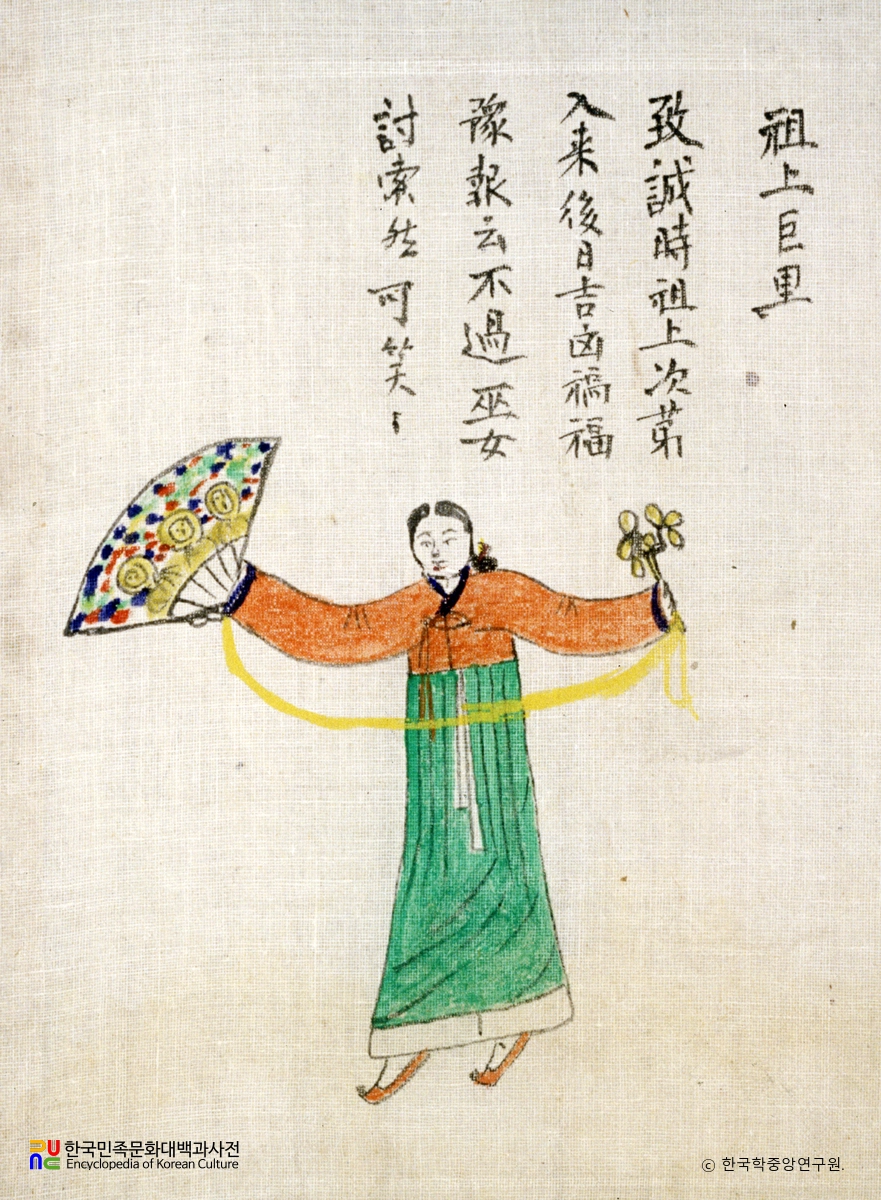 祖上巨里
致誠時祖上次苐
入来後日吉凶禍福
豫報云不過巫女
討索然可笑〻
한국민족문화대백과사전
Encyclopedia of Korean Culture
ⓒ 한국학중앙연구원.